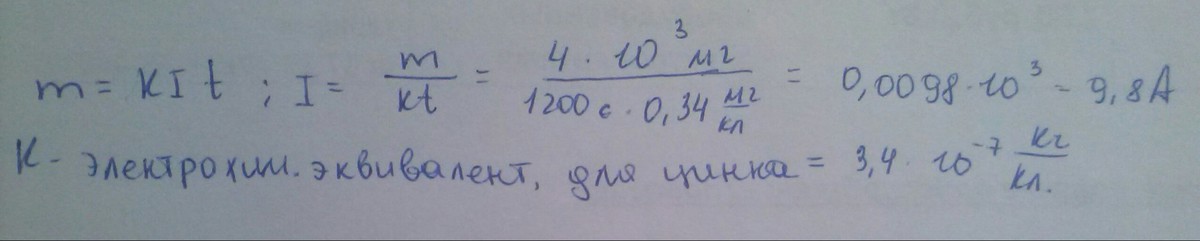 m = kIt ; I = m/kt = 4 · 10³ мг / 1200 с · 0,34 мг/кл = 0,0098 · 10³ - 9,8 А
К - электрохим. эквивалент, для цинка = 3,4 · 10⁻⁷ кг/кл.